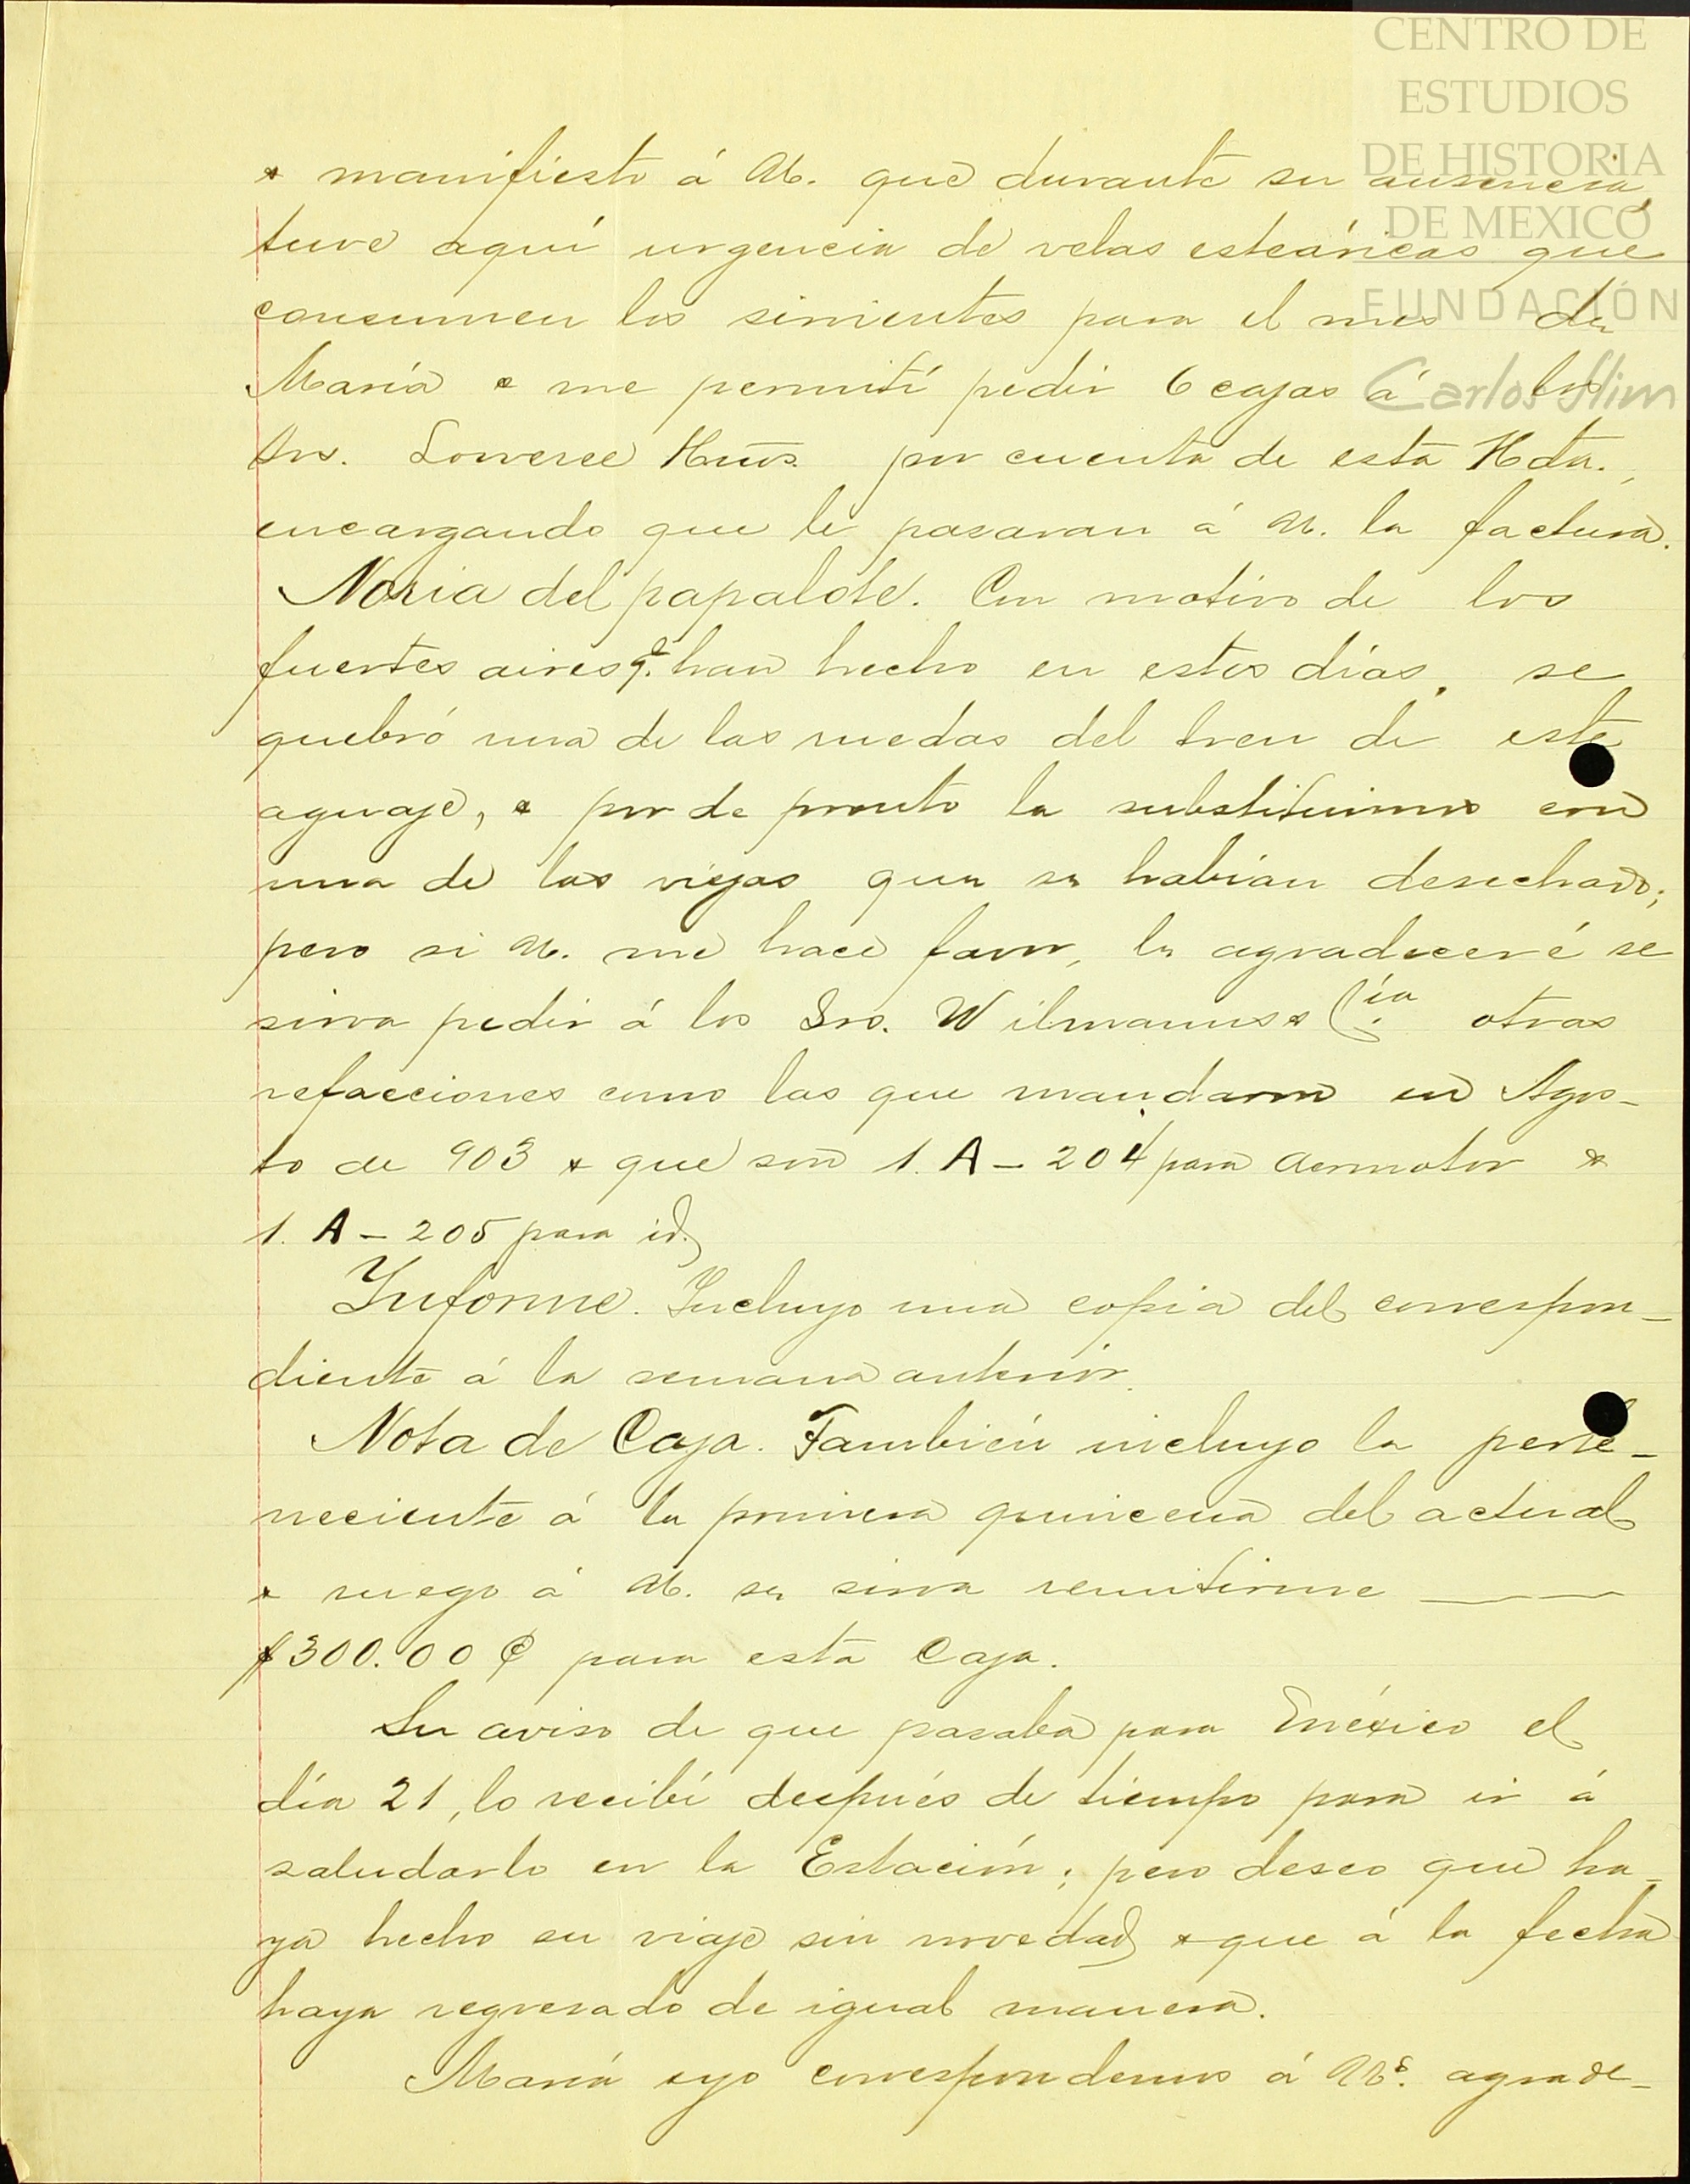 CENTRO DE
ESTUDIOS
DE HISTORIA
DE MEXICO
FUNDACIÓN
Carlos Slim
& manifiesto á U. que durante su ausencia,
tuve aquí urgencia de velas esteáricas que
consumen los sirvientes para el mes de
María & me permití pedir 6 cajas á los
Srs. Loweree Hnos. por cuenta de esta Hda.,
encargando que le pasaran á U. la factura.
Noria del papalote. Con motivo de los
fuertes aires q. han hecho en estos días, se
quebró una de las ruedas del tren de este
aguaje, & por de pronto la substituimos con
una de las viejas que se habían desechado;
pero si U. me hace favor, le agradeceré se
sirva pedir á los Srs. Wilmanns & Cía. otras
refacciones como las que mandaron en Agos-
to de 903 & que son 1. A-204 para Aermotor &
1. A-205 para id.
Informe. Incluyo una copia del correspon-
diente á la semana anterior.
Nota de Caja. También incluyo la perte-
neciente á la primera quincena del actual
& ruego á U. se sirva remitirme ———
$300.00 ¢ para esta Caja.
Su aviso de que pasaba para México el
día 21, lo recibí después de tiempo para ir á
saludarlo en la Estación; pero deseo que ha-
ya hecho su viaje sin novedad & que á la fecha
haya regresado de igual manera.
María & yo correspondemos á Us. agrade-